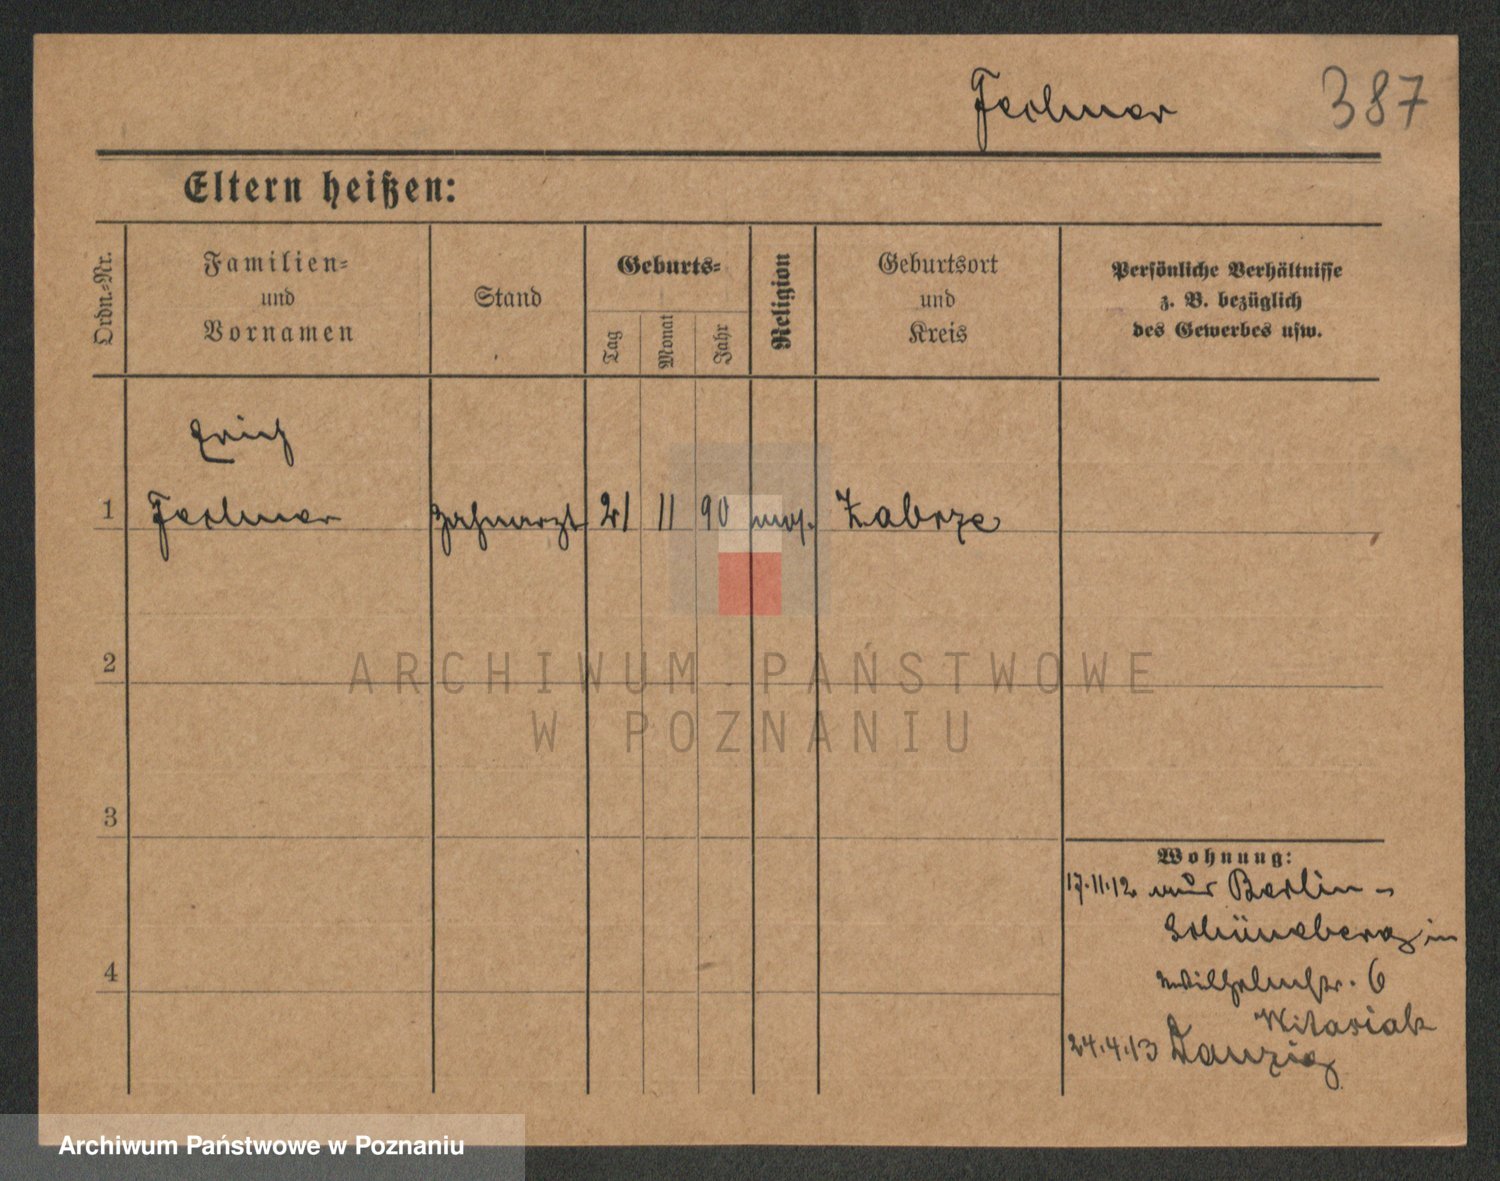 Fechner
387
Eltern heißen:
Ordn.-Nr.
Familien-
und
Vornamen
Stand
Geburts-
Tag
Monat
Jahr
Religion
Geburtsort
und
Kreis
Persönliche Verhältnisse
z. B. bezüglich
des Gewerbes usw.
Erich
1 Fechner Zahnarzt 21 11 90 mos. Zabrze
2
3
4
Wohnung:
17.11.12 aus Berlin-
Schöneberg in
Wilhelmstr. 6
24.4.13 Danzig
ARCHIWUM PAŃSTWOWE
W POZNANIU
Archiwum Państwowe w Poznaniu